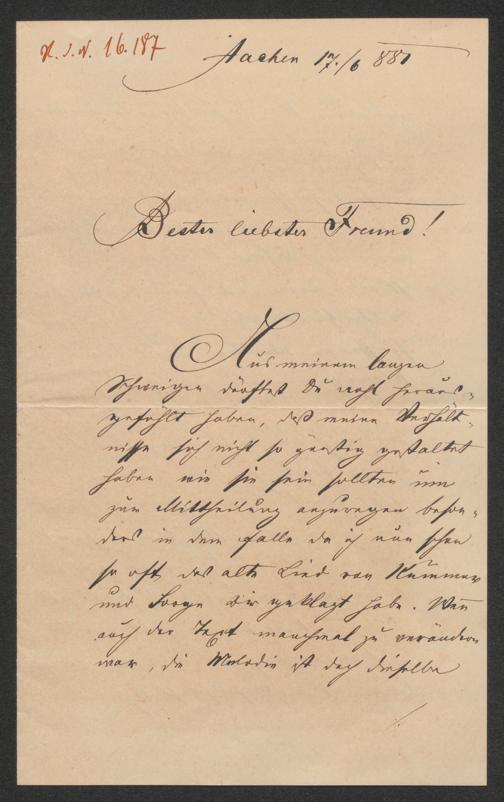 H. I. N. 16.187
Aachen 17./6 881
Bester liebster Freund!
Aus meinem langen
Schweigen dürftest Du wohl heraus-
gefühlt haben, daß meine Verhält-
nisse sich nicht so günstig gestaltet
haben wie sie sein sollten um
zur Mittheilung anzuregen beson-
ders in dem Falle da ich nun schon
so oft das alte Lied von Kummer
und Sorge dir geklagt habe. Wenn
auch der Text manchmal zu verändern
war, die Melodie ist doch dieselbe